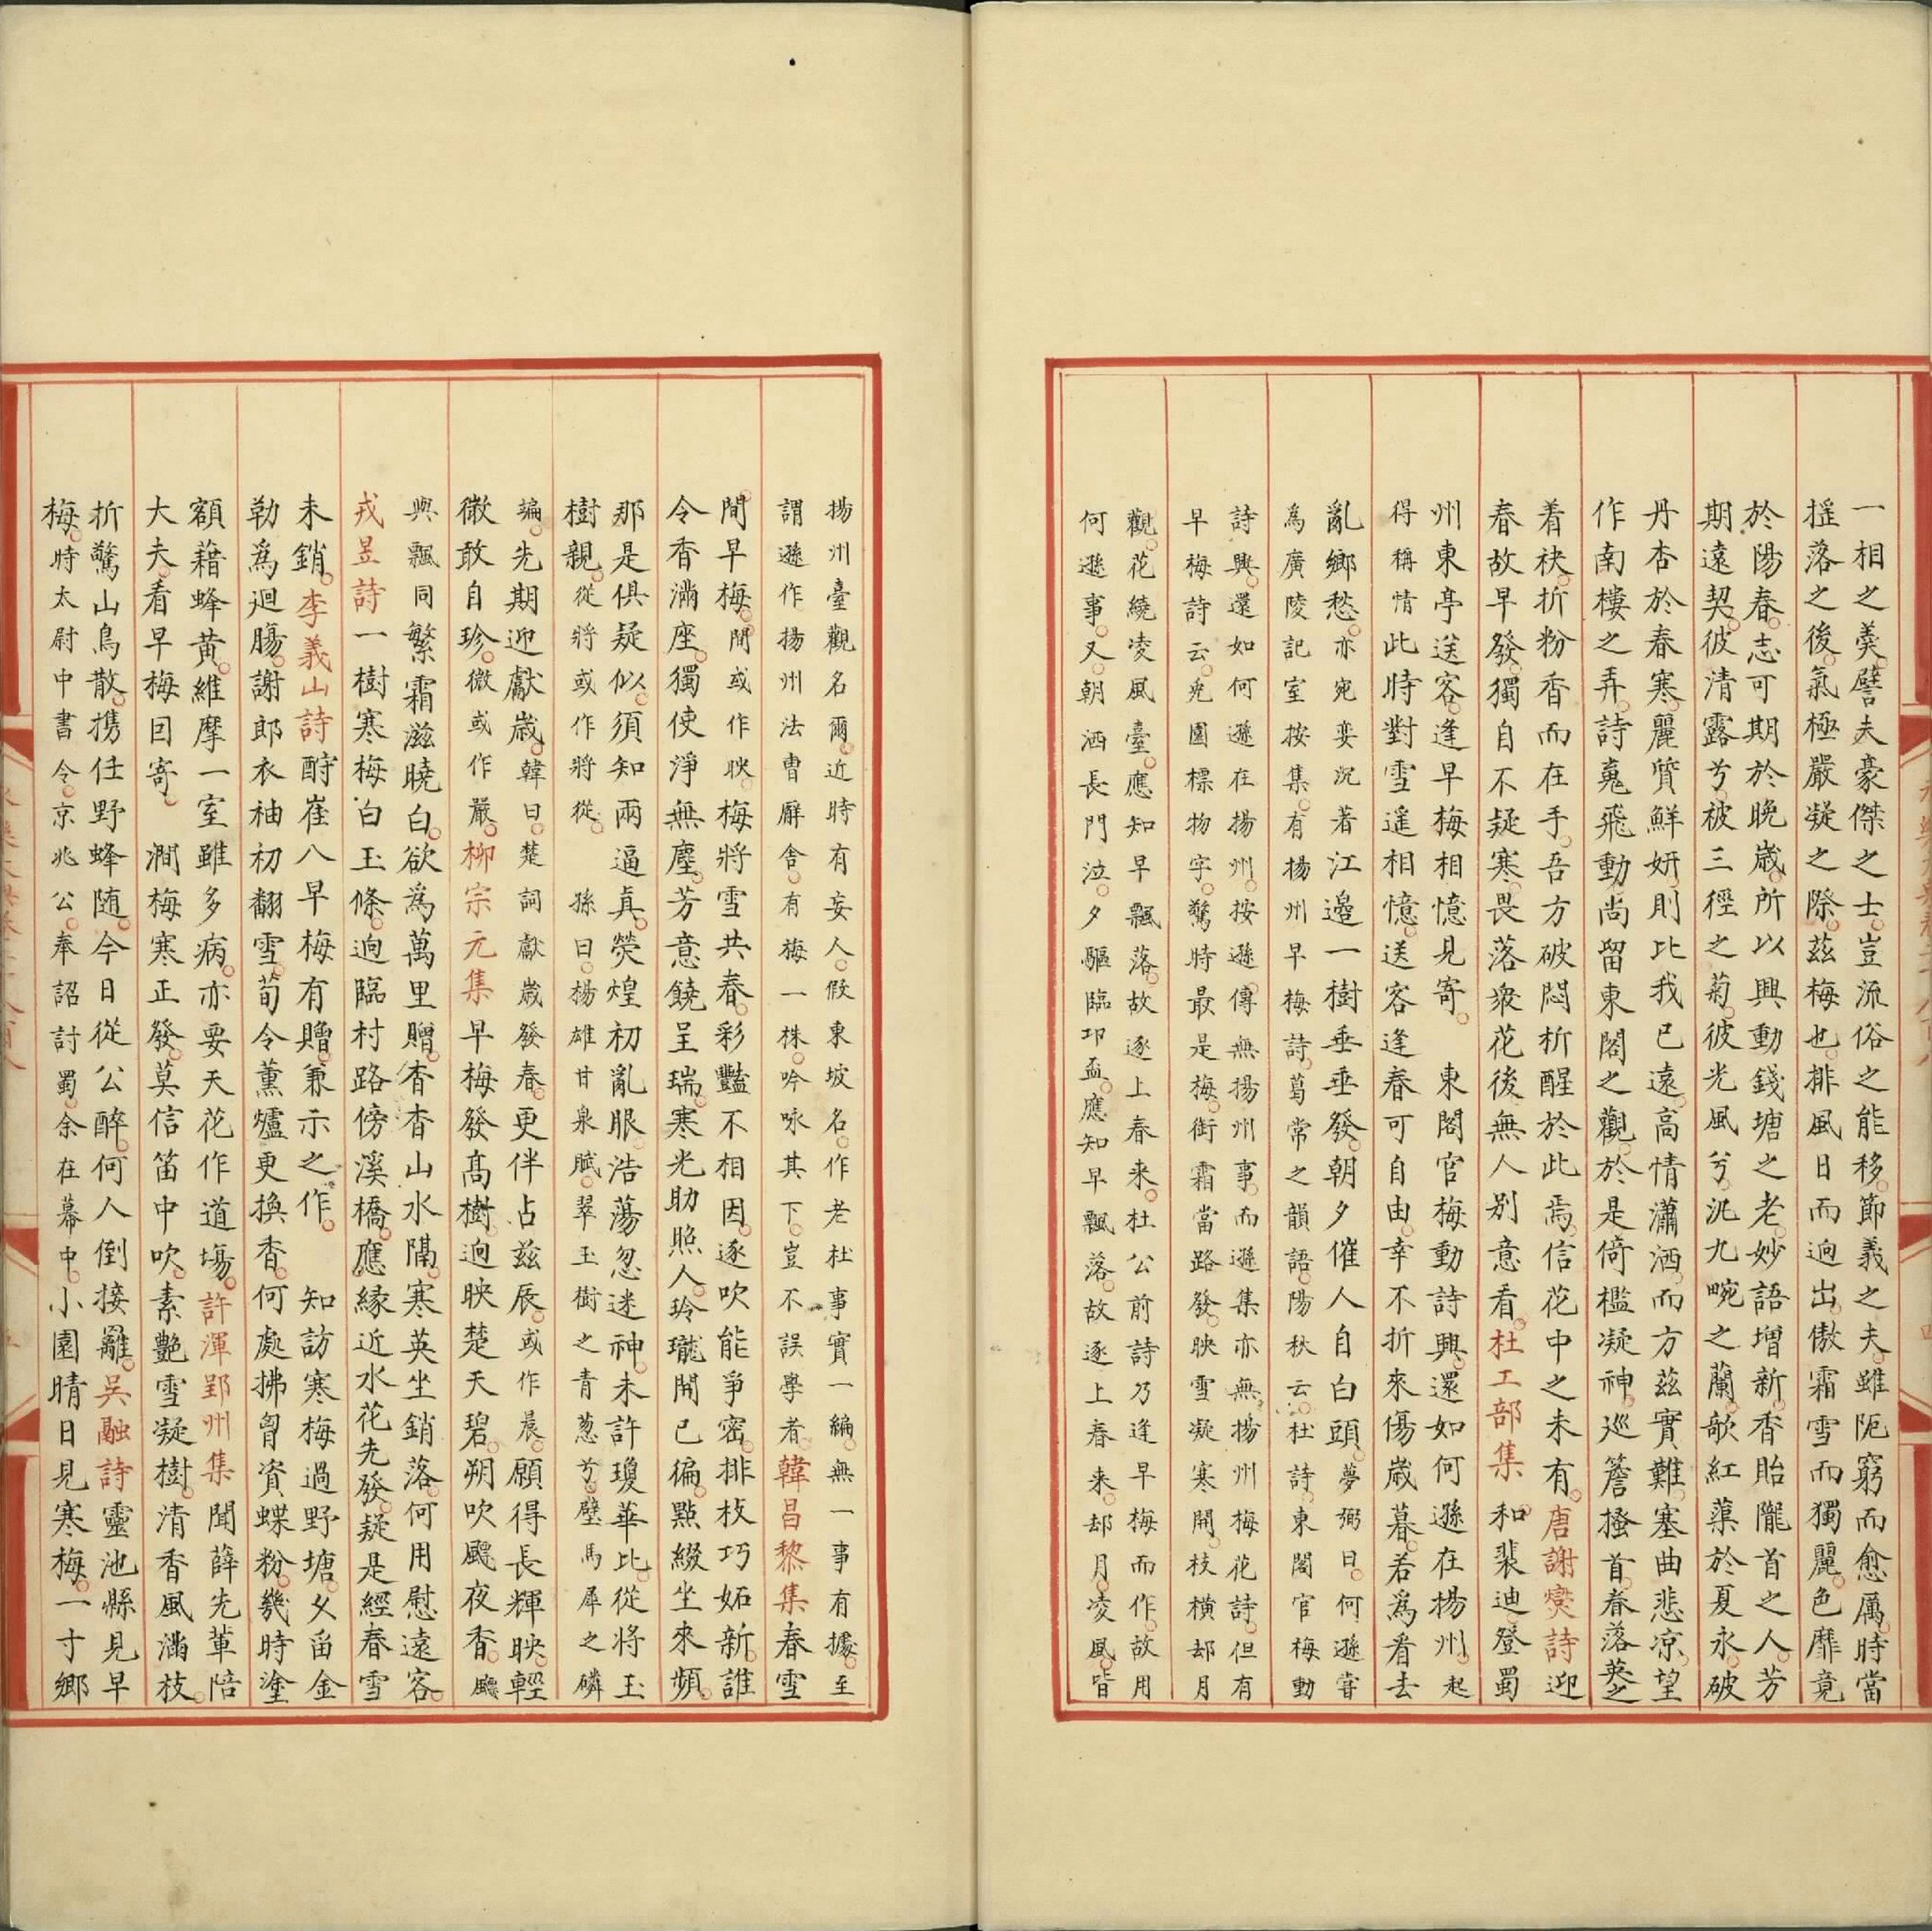 一相之羙譬夫豪傑之士豈流俗之能移節義之夫雖阨窮而愈厲時當
揺落之後氣極嚴凝之際茲梅也排風日而逈出傲霜雪而獨麗色靡竟
於陽春志可期於晚歳所以興動錢塘之老妙語増新香貽隴首之人芳
期遠契彼清露兮被三徑之菊彼光風兮汎九畹之蘭歌紅蕖於夏永破
丹杏於春寒麗質鮮妍則比我已遠高情瀟洒而方茲實難塞曲悲凉望
作南樓之弄詩䰟飛動尚留東閣之觀於是倚檻凝神巡簷搔首春落英之
着袂折粉香而在手吾方破悶析酲於此焉信花中之未有唐謝爕詩迎
春故早發獨自不疑寒畏落衆花後無人别意看杜工部集和裴迪登蜀
州東亭送客逢早梅相憶見寄 東閣官梅動詩興還如何遜在揚州起
得稱情此時對雪遥相憶送客逢春可自由幸不折來傷歳暮若爲看去
亂鄉愁亦宛娈沉著江邉一樹垂垂發朝夕催人自白頭夢弼曰何遜甞
爲廣陵記室按集有揚州早梅詩葛常之韻語陽秋云杜詩東閣官梅動
詩興還如何遜在揚州按遜傳無揚州事而遜集亦無揚州梅花詩但有
早梅詩云兎園標物序驚時最是梅銜霜當路發映雪凝寒開枝横却月
觀花繞凌風臺應知早飄落故逐上春来杜公前詩乃逢早梅而作故用
何遜事又朝洒長門泣夕驅臨卭盃應知早飄落故逐上春来却月凌風皆
揚州臺觀名爾近時有妄人假東坡名作老杜事實一編無一事有據至
謂遜作揚州法曹廨舍有梅一株吟咏其下豈不誤學者韓昌黎集春雪
間早梅間或作映梅將雪共春彩豔不相因逐吹能爭密排枝巧妬新誰
令香滿座獨使淨無塵芳意饒呈瑞寒光助照人玲瓏開已徧點綴坐來頻
那是俱疑似須知兩逼真熒煌初亂眼浩蕩忽迷神未許瓊華比從將玉
樹親從將或作將從 孫曰楊雄甘泉賦翠玉樹之青葱兮璧馬犀之磷
㻞先期迎獻歳韓曰楚詞獻歳發春更伴占茲辰或作晨願得長輝映輕
微敢自珍微或作嚴柳宗元集早梅發髙樹逈映楚天碧朔吹飈夜香飈
與飄同繁霜滋曉白欲爲萬里贈杳杳山水隔寒英坐銷落何用慰遠客
戎昱詩一樹寒梅白玉條逈臨村路傍溪橋應緣近水花先發疑是經春雪
未銷李義山詩酧崔八早梅有贈兼示之作 知訪寒梅過野塘久留金
勒爲迴腸謝郎衣袖初翻雪荀令薰爐更換香何處拂胷資蝶粉幾時塗
額藉蜂黄維摩一室雖多病亦要天花作道塲許渾郢州集聞薛先輩陪
大夫看早梅因寄 澗梅寒正發莫信笛中吹素艷雪凝樹清香風滿枝
折驚山鳥散携任野蜂随今日從公醉何人倒接䍦吳融詩靈池縣見早
梅時太尉中書令京兆公奉詔討蜀余在幕中小園晴日見寒梅一寸鄉